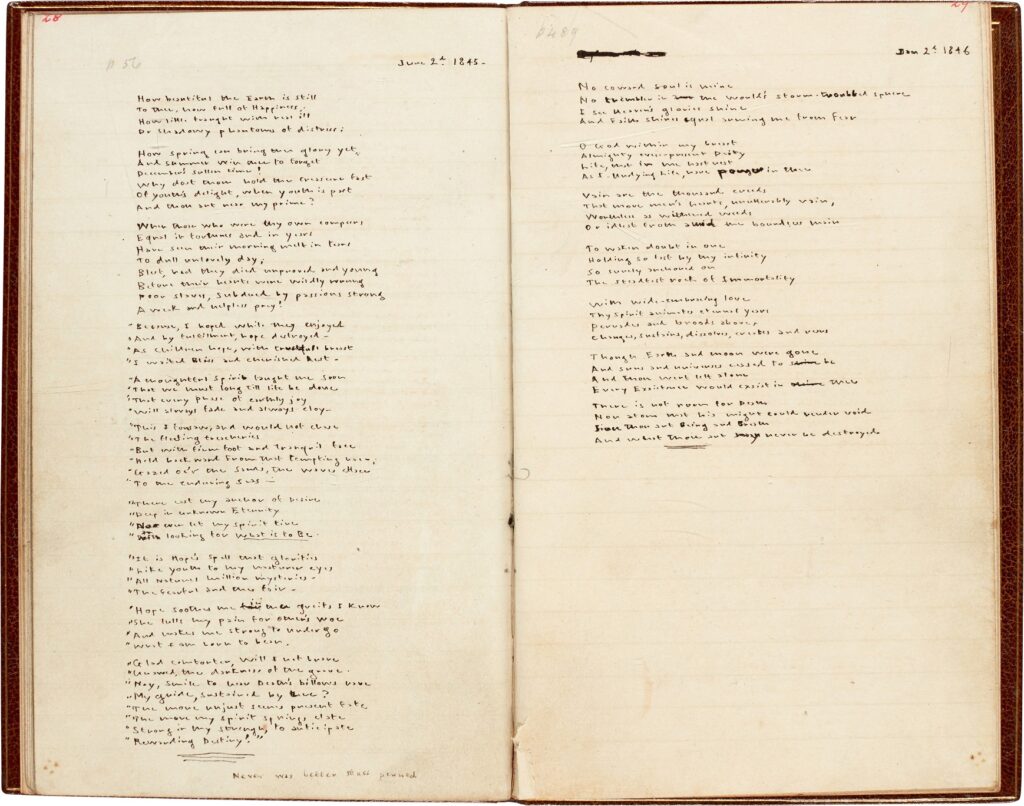 28
June 2d. 1845-
How beautiful the Earth is still
To thee, how full of Happiness;
How little fraught with real ill
Or shadowy phantoms of distress;
How spring can bring thee glory yet
And summer win thee to forget
December's sullen time!
Why dost thou hold the treasure fast
Of youth's delight, when youth is past
And thou art near thy prime?
When those who were thy own compeers
Equal in fortunes and in years
Have seen their morning melt in tears
To dull unlovely day;
Blest, had they died unproved and young
Before their hearts were wildly wrung
Poor slaves, subdued by passions strong
A weak and helpless prey!
"Because, I hoped while they enjoyed
"And by fulfilment, hope destroyed-
"As children hope, with trustful breast
"I waited Bliss and cherished Rest-
"A thoughtful Spirit taught me soon
"That we must long till life be done
"That every phase of earthly joy
"Will always fade and always cloy-
"This I foresaw, and would not chase
"The fleeting treacheries
"But with firm foot and tranquil face
"Held backward from that tempting race,
"Gazed o'er the sands, the waves efface
"To the enduring seas-
"There cast my anchor of desire
"Deep in unknown Eternity
"Nor ever let my Spirit tire
"With looking for What is to Be.
"It is Hope's spell that glorifies
"Like youth to my maturer eyes
"All Nature's million mysteries-
"The fearful and the fair-
"Hope soothes me in the griefs I know
"She lulls my pain for others' woe
"And makes me strong to undergo
"What I am born to bear.
"Glad comforter, will I not brave
"Unawed, the darkness of the grave.
"Nay, smile to hear Death's billows rave
"My guide, sustained by thee?
"The more unjust seems present fate
"The more my Spirit springs elate
"Strong in thy strength, to anticipate
"Rewarding Destiny!"
Never was better stuff penned
29
Jan 2d 1846
No coward soul is mine
No trembler in the world's storm-troubled sphere
I see Heaven's glories shine
And Faith shines equal arming me from Fear
O God within my breast
Almighty ever-present Deity
Life, that in me hast rest
As I Undying Life, have power in thee
Vain are the thousand creeds
That move men's hearts, unutterably vain,
Worthless as withered weeds
Or idlest froth amid the boundless main
To waken doubt in one
Holding so fast by thy infinity
So surely anchored on
The steadfast rock of Immortality
With wide-embracing love
Thy Spirit animates eternal years
Pervades and broods above,
Changes, sustains, dissolves, creates and rears
Though Earth and moon were gone
And suns and universes ceased to be
And thou wert left alone
Every Existence would exist in thee
There is not room for Death
Nor atom that his might could render void
Since thou art Being and Breath
And what thou art may never be destroyed